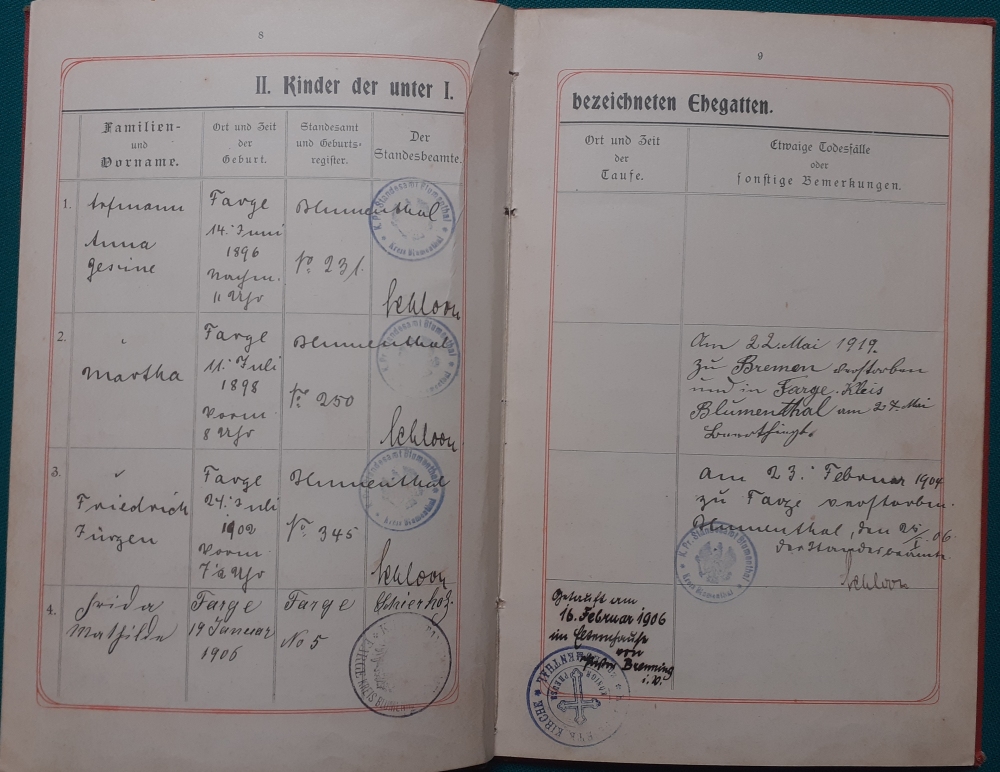 8
II. Kinder der unter I.
Familien-
und
Vorname.
Ort und Zeit
der
Geburt.
Standesamt
und Geburts-
register.
Der
Standesbeamte.
1.
Anna
Gesine
Farge
14. Juni
1896
Nachm.
11 Uhr
Blumenthal
No 231.
K. Pr. Standesamt Blumenthal
Kreis Blumenthal
Schloon
2.
"
Martha
Farge
11. Juli
1898
Vorm.
8 Uhr
Blumenthal
No 250
Schloon
3.
"
Friedrich
Jürgen
Farge
24. Juli
1902
Vorm.
Uhr
Blumenthal
No 345
Schloon
4.
Frida
Mathilde
Farge
19 Januar
1906
Farge
No 5
Schierholz.
FARGE
9
bezeichneten Ehegatten.
Ort und Zeit
der
Taufe.
Etwaige Todesfälle
oder
sonstige Bemerkungen.
Am 22. Mai 1919.
zu Bremen verstorben
und in Farge. Kreis
Blumenthal am 27. Mai
am 23. Februar 1904
zu Farge verstorben.
Blumenthal, den 06.
der Standesbeamte.
Schloon
K. Pr. Standesamt Blumenthal
Kreis Blumenthal
Getauft am
16. Februar 1906
im Elternhause
von
Pastor Brenning
i. V.
KIRCHE
BLUMENTHAL